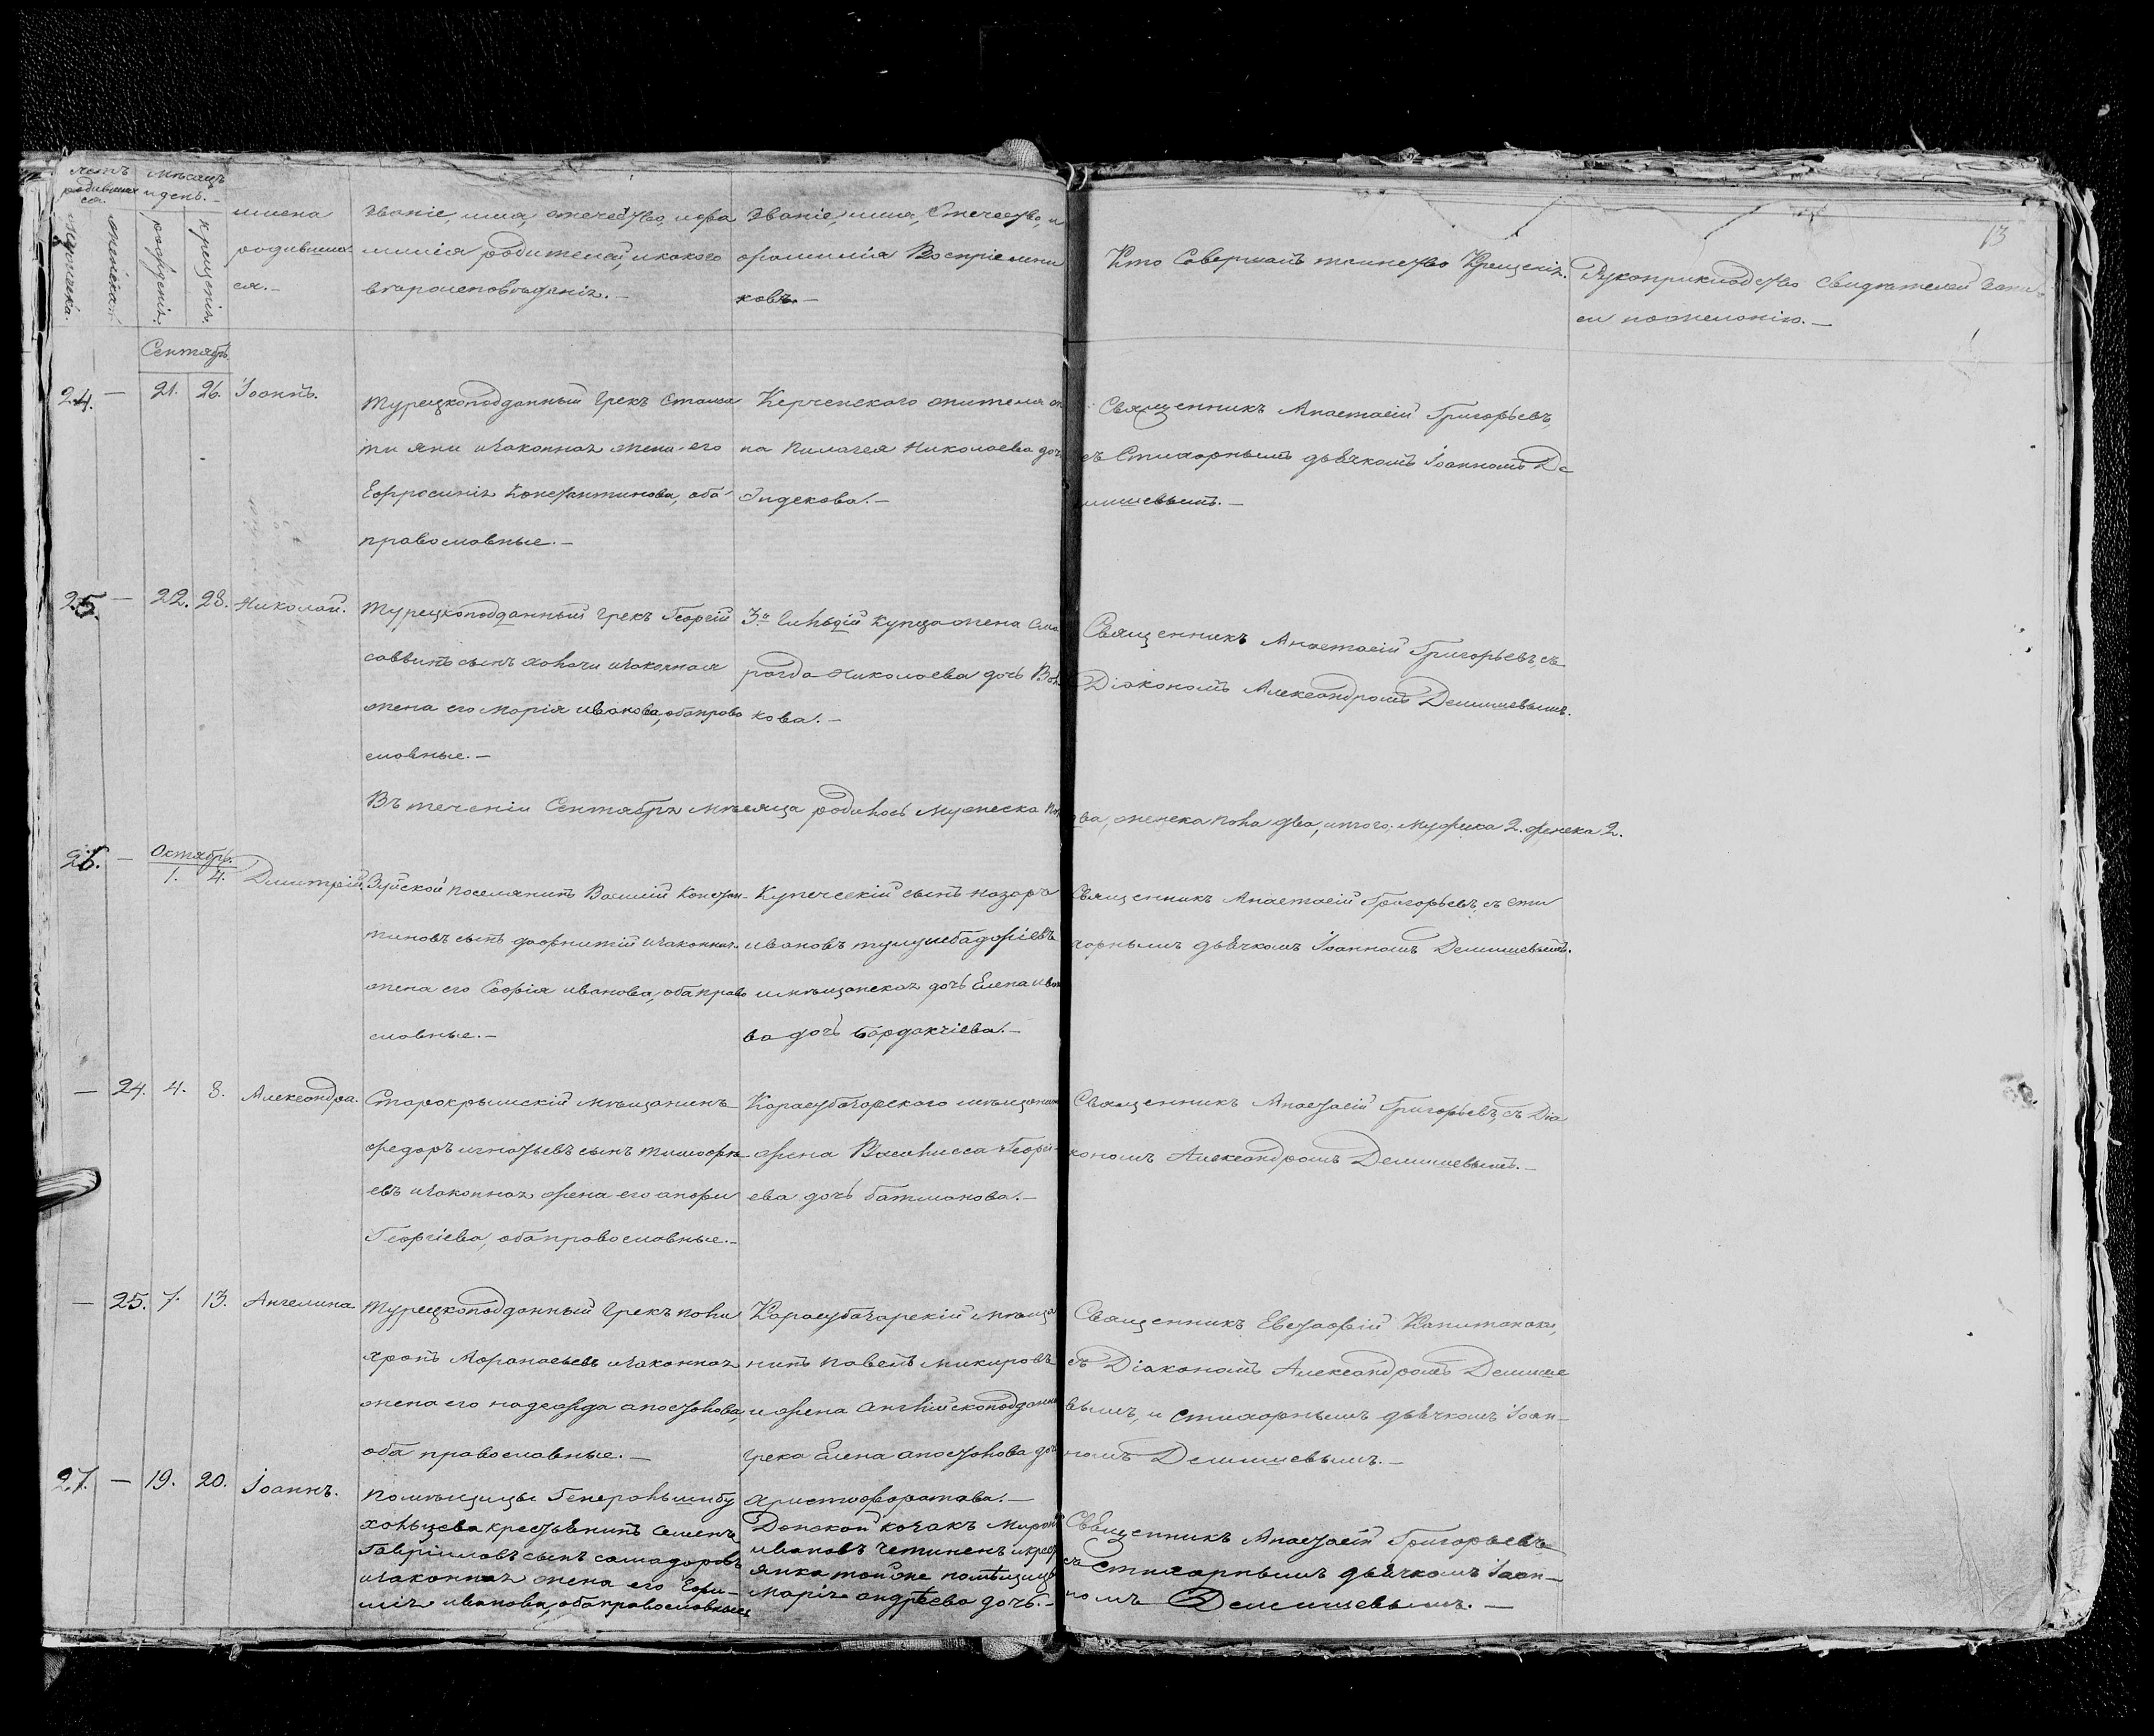 13
Счетъ родившихся.
Мѣсяцъ и день.
мужеска.
женска.
рожденія.
крещенія.
имена
родивших
ся.
Званіе имя, отечество, и фа
милія родителей, и какого
вѣроисповѣданія.
Званіе, имя, Отечество, и
фамилія Воспріемни
ковъ.
Кто Совершалъ таинство Крещенія.
Рукоприкладство Свидѣтелей запи
си по желанію.
Сентябрь.
24. — 21. 26. Іоаннъ.
Турецкоподданный Грекъ Стама
ти яни и законная жена его
Ефросинія Константинова, оба
православные.
Керченского жителя
на пилагея Николаева доч
Священникъ Анастасій Григорьевъ,
съ Стихарнымъ дьячкомъ Іоанномъ Де
мишевымъ.
25. — 22. 28. Николай.
Турецкоподданный Грекъ Георгій
саввинъ сынъ и законная
жена его марія иванова, оба право
славные.
3й Гильдій купца жена Сма
рагда Николаева дочь
кова.
Священникъ Анастасій Григорьевъ, съ
Діакономъ Александромъ Демишевымъ.
Въ теченіи Сентября мѣсяца родилось мужеска пол
два, женска пола два, итого: мужеска 2. женска 2.
Октябрь.
26. — 1. 4. Димитрій.
Зуйской поселянинъ Василій Констан
тиновъ сынъ и законная
жена его Софія иванова, оба право
славные.
Купеческій сынъ назаръ
ивановъ
и мѣщанская дочь Елена ива
ва дочь бардакчіева.
Священникъ Анастасій Григорьевъ, съ сти
харнымъ дьячкомъ Іоанномъ Демишевымъ.
— 24. 4. 8. Александра.
Старокрымскій мѣщанинъ
федоръ игнатьевъ сынъ тимофе
евъ и законная жена его
Георгіева, оба православные.
Карасубазарского мѣщанина
жена Василисса Георгі
ева дочь батманова.
Священникъ Анастасій Григорьевъ, съ Діа
кономъ Александромъ Демишевымъ.
— 25. 7. 13. Ангелина
Турецкоподданный Грекъ поли
хронъ Афанасьевъ и законная
жена его надежда апостолова,
оба православные.
Карасубазарскій мѣща
нинъ павелъ
и жена Англійскоподданна
грека Елена апостолова доч
Священникъ Евстафій Капитанаки,
съ Діакономъ Александромъ Демише
вымъ, и стихарнымъ дьячкомъ Іоан
номъ Демишевымъ.
27. — 19. 20. Іоаннъ.
помѣщицы Генеральши бу
хольцева крестьянинъ семенъ
Гавріиловъ сынъ
и законная жена его Ефи
мія иванова, оба православные
Донской козакъ Миронъ
ивановъ и крест
янка той же помѣщицы
марія андреева дочь.
Священникъ Анастасій Григорьевъ
съ Стихарнымъ дьячкомъ Іоан
номъ Демишевымъ.